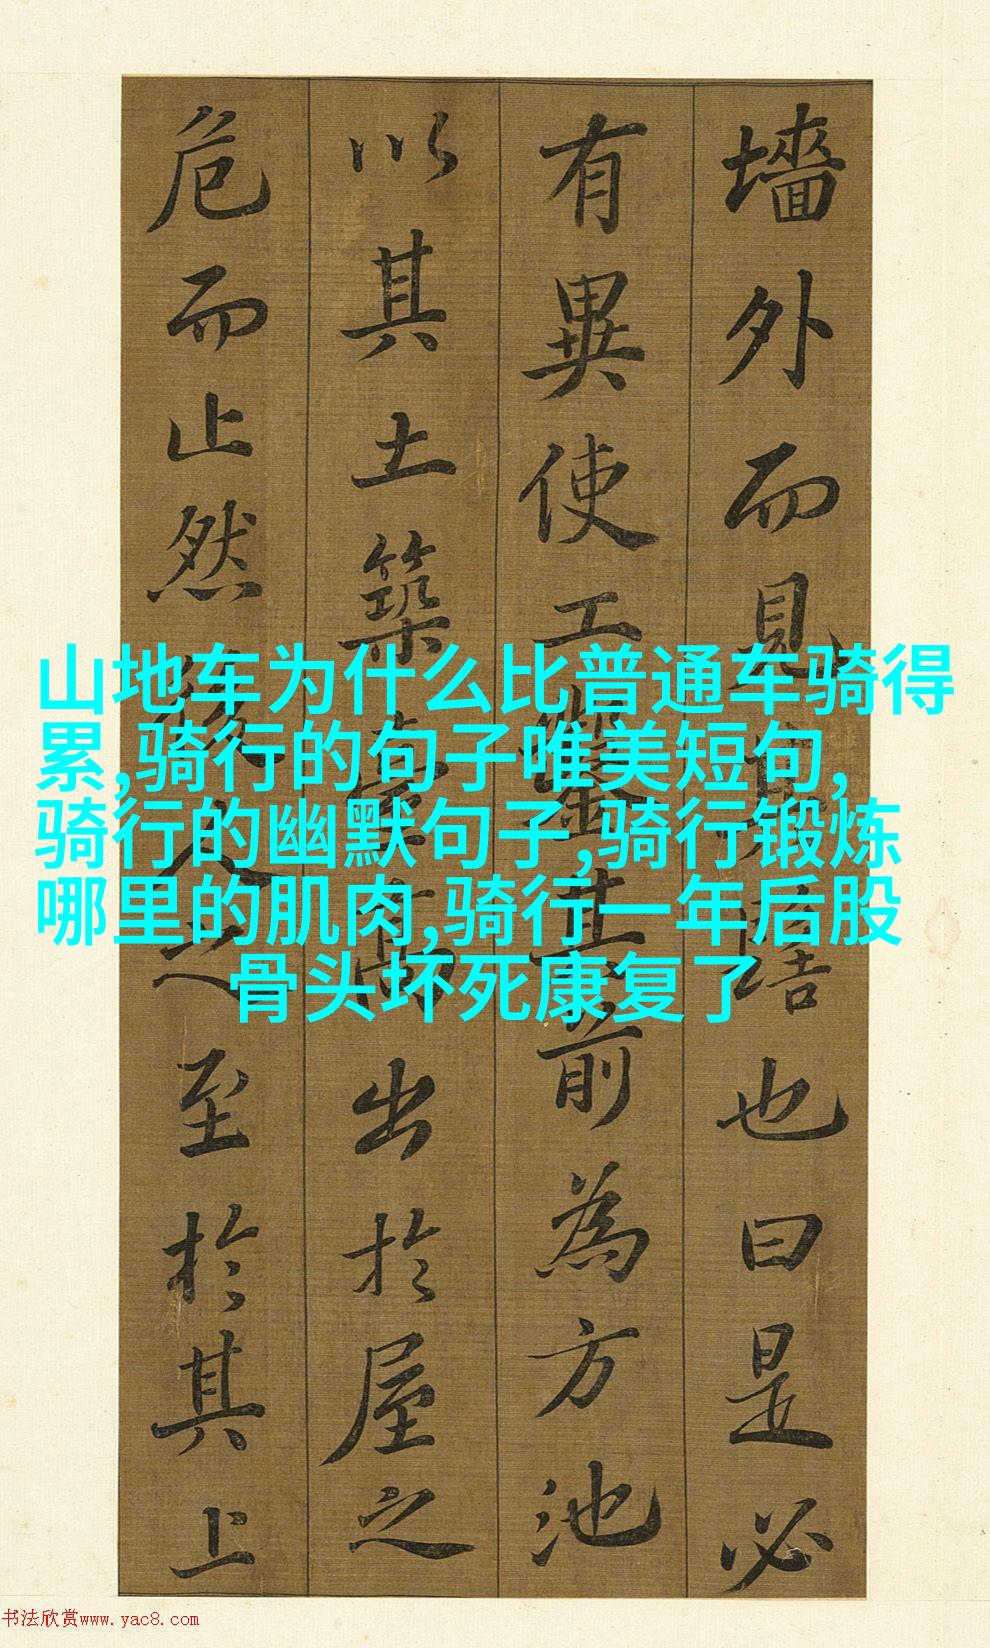 墻外而見其髻也曰是必
有異使工鑿其前為方池
以其土築臺高出於屋之
危而止然後人之至於其上
山地车为什么比普通车骑得
累,骑行的句子唯美短句,
骑行的幽默句子,骑行锻炼
哪里的肌肉,骑行一年后股
骨头坏死康复了
书法欣赏www.yac8.com